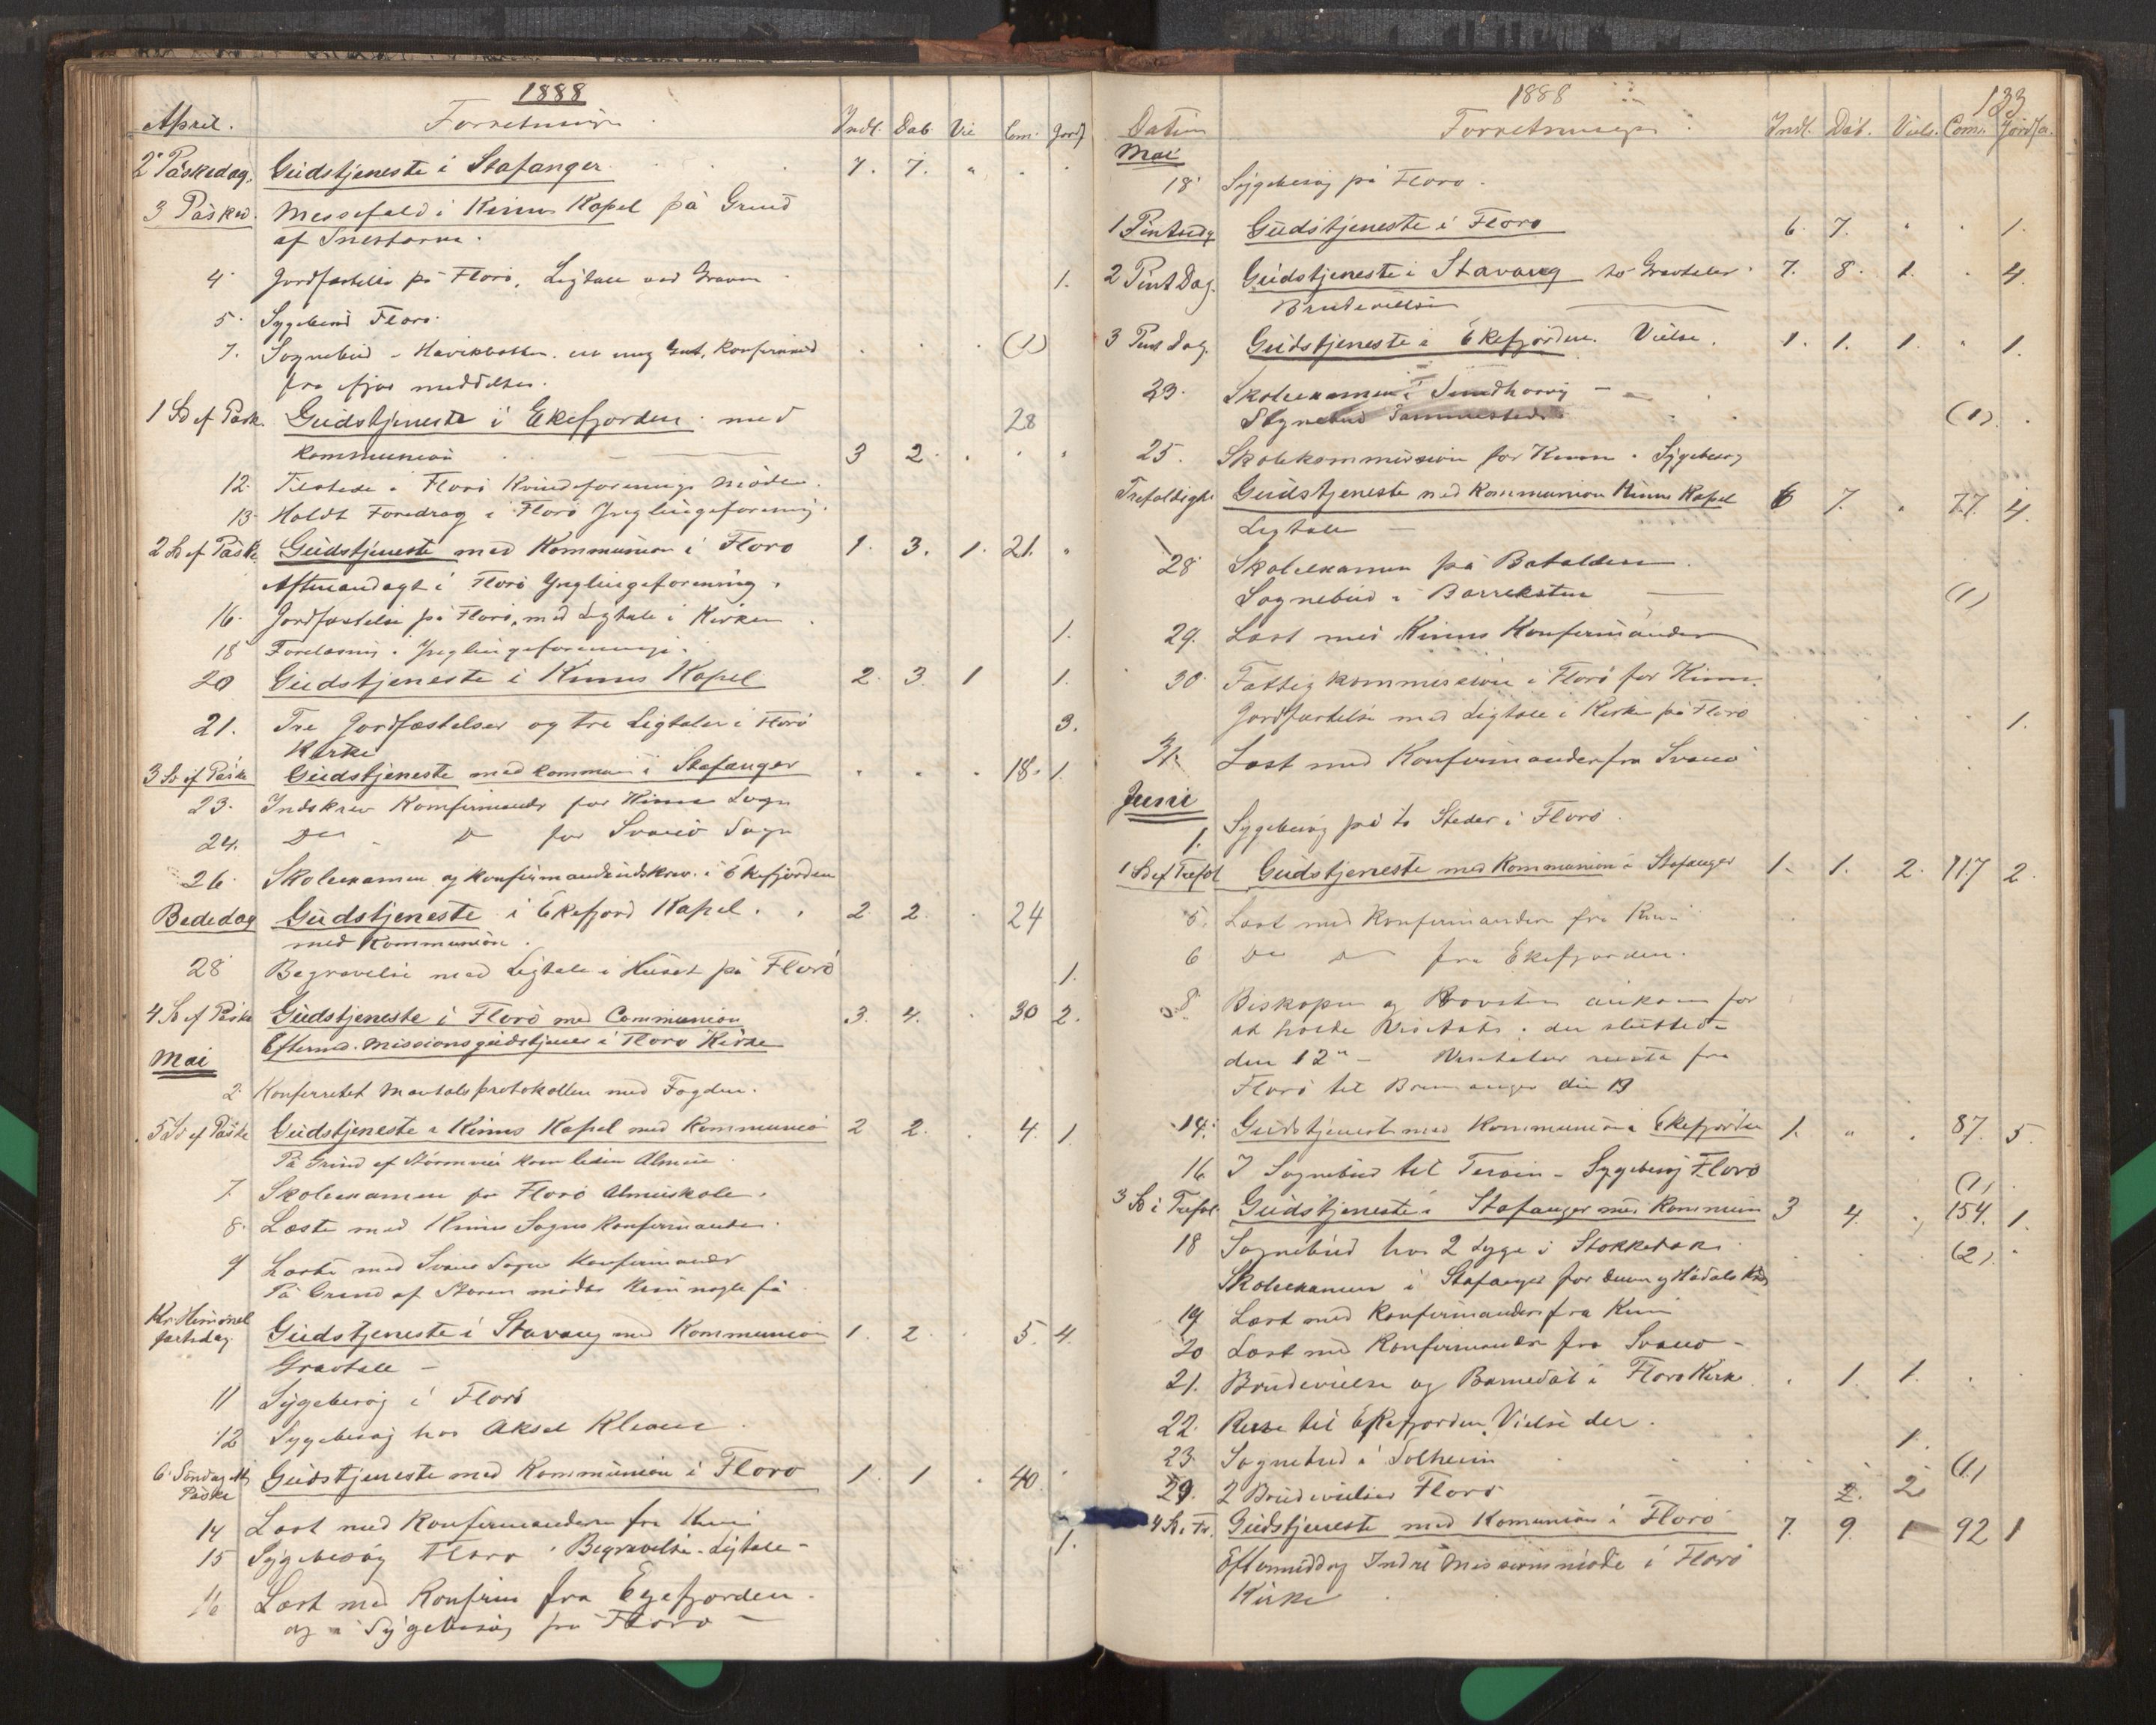 1888
April. Forretninger Indl. Dab Vie Com. Jordf
2 Påskedag. Gudstjeneste i Stafanger 7. 7. " . .
3 Påsked. Messefald i Kinns Kapel på Grund
af Snestorm.
4 Jordfæstelse på Florø, Ligtale ved Graven 1.
5. Sygebesøg Florø.
7. Sognebud - Havikbotten. en ung Gut, Konfirmand . . . (1)
fra ifjor meddeltes.
1 Sd ef Påsk. Gudstjeneste i Ekefjorden med 28
Kommunion 3 2 . . .
12. Tilstede i Florø Kvindeforenings Møde.
13. Holdt Foredrag i Florø Ynglingeforening.
2 Sd ef Påske Gudstjeneste med Kommunion i Florø 1. 3. 1. 21. "
Aftenandagt i Florø Ynglingeforening.
16. Jordfæstelse på Florø, med Ligtale i Kirken 1.
18 Forelæsning i Ynglingeforeningen.
20 Gudstjeneste i Kinns Kapel 2. 3. 1 1.
21. Tre Jordfæstelser og tre Ligtaler i Florø 3.
Kirke
3 Sd ef Påske Gudstjeneste med kommun i Stafanger . . . 18. 1.
23. Indskrev Konfirmander for Kinns Sogn
24. Do Do for Svanø Sogn
26. Skoleexamen og konfirmandindskriv. i Ekefjorden
Bededag Gudstjeneste i Ekefjord Kapel. 2 2. . 24
med Kommunion.
28 Begravelse med Ligtale i Huset på Florø 1.
4 Sd ef Påske Gudstjeneste i Florø med Communion 3. 4. . 30 2.
Eftermd. Missionsgudstjenes i Florø Kirke
Mai
2. Konferretet Mantalsprotokollen med Fogden.
5 Sd ef Påske Gudstjeneste i Kinns Kapel med Kommunion 2 2. . 4. 1.
På Grund af Stormveir kom liden Almue
7. Skoleexamen for Florø Almueskole.
8. Læste med Kinns Sogns Konfirmander.
9 Læste med Svanø Sogns Konfirmander
På Grund af Storm mødte kun nogle få
Kr. Himmel
fartsdag. Gudstjeneste i Stavang med Kommunion 1. 2. . 5. 4.
Gravtale -
11 Sygebesøg i Florø
12 Sygebesøg hos Aksel Klaue
6 Søndag eft
Påske Gudstjeneste med Kommunion i Florø 1. 1 . 40.
14 Læst med Konfirmanderne fra Kinn
15 Sygebesøg Florø. Begravelse. Ligtale - 1.
16 Læst med Konfirm fra Egefjorden.
og i Sygebesøg på Florø -
1888 133
Datum Forretninger Indl. Dåb. Viels. Com. Jordfæ.
Mai
18. Sygebesøg på Florø.
1 Pintsedg Gudstjeneste i Florø 6. 7. . . 1.
2 Pint Dag. Gudstjeneste i Stavang to Gravtaler 7. 8. 1. . 4.
Brudevielse
3 Pins Dag. Gudstjeneste i Ekefjorden. Vielse. 1. 1. 1. . 1.
23. Skoleexamen i Sundhovig -
Sognebud Sammesteds (1).
25. Skolekommission for Kinn. Sygebesøg
Trefoldighe Gudstjeneste med Kommunion Kinns Kapel 6 7. . 77. 4.
Ligtale -
28 Skoleexamen på Batalden
Sognebud i Barreksten (1)
29. Læst med Kinns Konfirmander
30. Fattigkommission i Florø for Kinn.
Jordfæstelse med Ligtale i Kirken på Florø 1.
31. Læst med Konfirmander fra Svanø
Juni
1. Sygebesøg på to Steder i Florø.
1 Sd ef Trefol Gudstjeneste med Kommunion i Stafanger 1. 1. 2. 117 2.
5. Læst med Konfirmander fra Kinn
6 Do Do fra Ekefjorden.
8. Biskopen og Provsten ankom for
at holde Visitats. der sluttede
den 12te - reiste fra
Florø til Bremanger den 13
14. Gudstjeneste med Kommunion i Ekefjorden 1. " . 87. 5.
16. I Sognebud til - Sygebesøg Florø (1).
3 Sd i Trefol. Gudstjeneste i Stafanger med Kommunion 3 4. . 154. 1.
18 Sognebud hos 2 Syge i Stokkebak (2).
Skoleexamen i Stafanger for
19. Læst med Konfirmander fra Kinn
20 Læst med Konfirmander fra Svanø -
21. Brudevielse og Barnedåb i Florø Kirke . 1. 1.
22. Reise til Ekefjorden. Vielse der. 1.
23. Sognebud i Solheim (1.)
29. 2 Brudevielser Florø 2. 2
4 Sd i Tr. Gudstjeneste med Komunion i Florø 7. 9. 1 92 1
Eftermiddag Indre Missionsmøde i Florø
Kirke